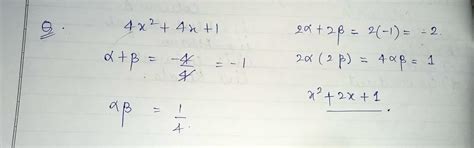 Q. 4x² + 4x + 1
α + β = -4/4 = -1
αβ = 1/4.
2α + 2β = 2(-1) = -2.
2α (2β) = 4αβ = 1
x² + 2x + 1.